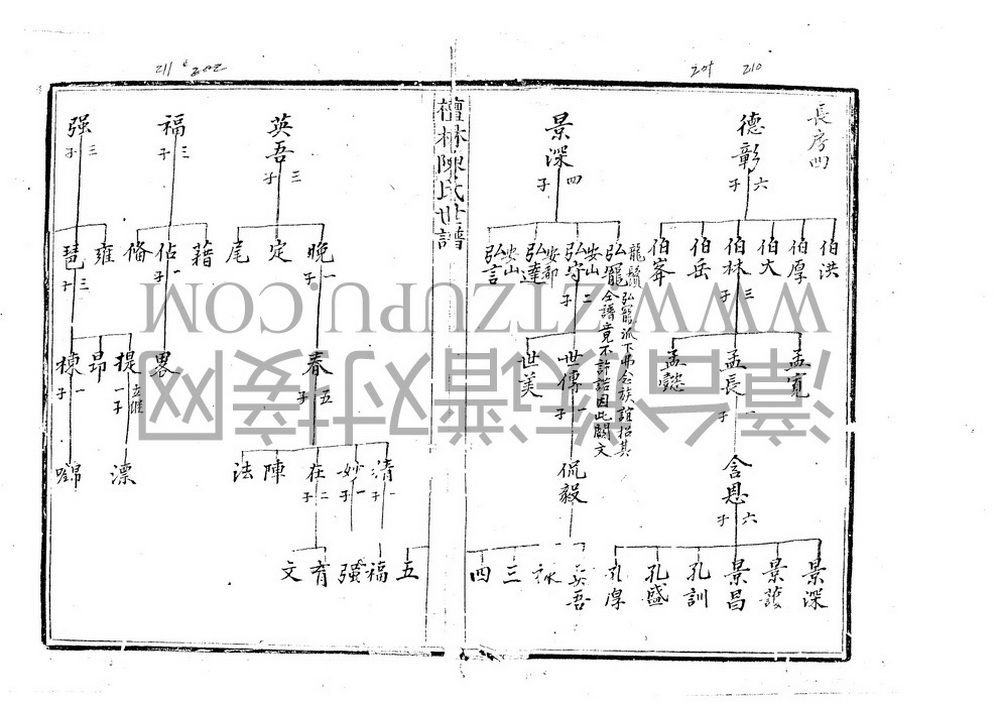 211 202
209 210
長房四
德彰
六子
伯洪
伯厚
伯大
伯林
三子
伯岳
伯峯
孟寬
孟長
一子
孟懿
含恩
六子
景深
景護
景昌
孔訓
孔盛
孔厚
景深
四子
龍鬚
弘寵
弘寵派下弗念族誼招其
合譜竟不許諾因此闕文
安山
弘守
二子
安邵
弘達
安山
弘言
世傳
一子
世美
侃毅
英吾
三
四
五
檀林陳氏世譜
英吾
三子
晚
一子
定
尾
春
五子
清
一子
妙
一子
在
二子
陣
法
福
强
育
文
福
三子
藉
佔
一子
脩
畧
强
三子
雍
琶
三子
提
立繼
一子
昂
棟
一子
漂
WWW.ZTZUPU.COM
漳台族谱对接网